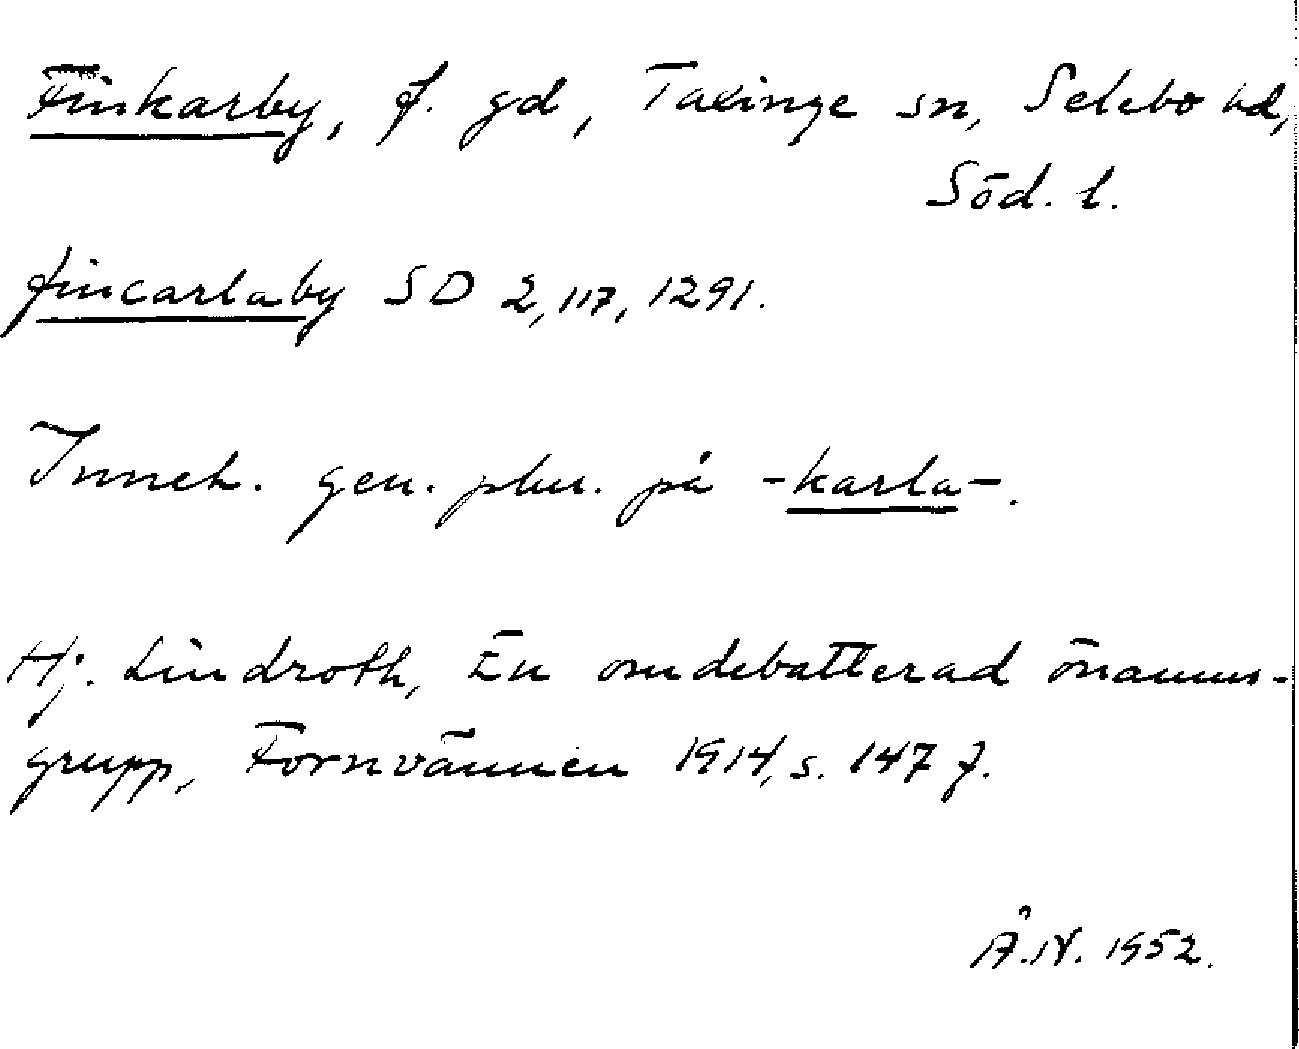 Finkarby, f. gd, Taxinge sn, Selebo hd,
Söd. l.
fincarlaby SD 2,117, 1291.
Inneh. gen. plur. på -karla-.
Hj. Lindroth, En omdebatterad önamns-
grupp, Fornvännen 1914, s. 147 f.
Å.N. 1952.